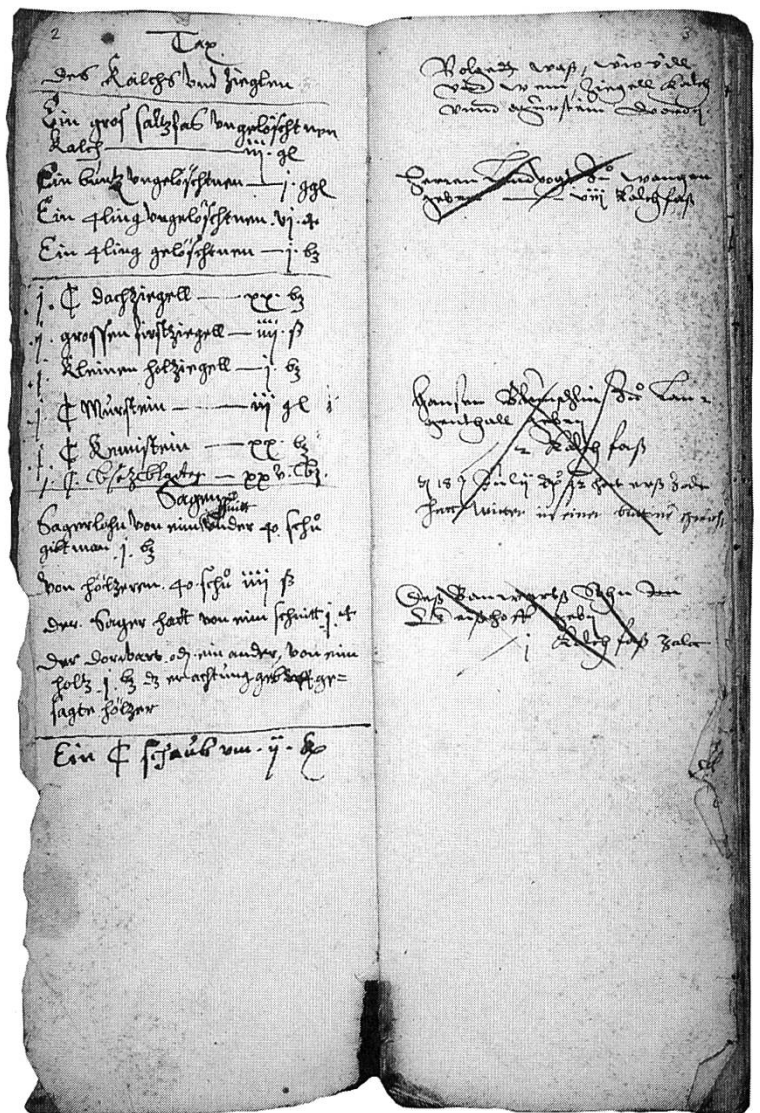 2
Tax.
des Kalchs und Zieglen
Ein gros saltzfas ungelöschtnen
Kalch — iij. gl
Ein büntz ungelöschtnen — j. ggl
Ein 4ling ungelöschtnen. vj. d
Ein 4ling gelöschtnen — j. bz
j. C dachziegell — xx. bz
j. grossen firstziegell — iiij. ß
j. Kleinen holziegell — j. bz
j C Murstein — iij gl
j. C Kemistein — xx. bz
j. C. bsetzblatten — xxv. bz.
Sagen
Sagerlohn von eim schnitt under 40. schů
gibt man. j. bz
Von höltzeren. 40. schů iiij ß
Der Sager hatt von eim schnitt. j. d
Der Dorwart. od. ein ander, von eim
holtz. j. bz dz er achtung geb uff ge=
sagte höltzer
Ein C schaub um. ij. lb
3
Volgedt waß, wivill
und wem Ziegell Kalch
unnd
Herren Landvogt zů Wangen
geben — viij Kalchfaß
Hansen zů Lan
genthall geben
2 Kalch faß
18 Julij hatt
hett Winter in einer
Deß Banwartß Sohn Im
geben
j Kalch faß Zalt